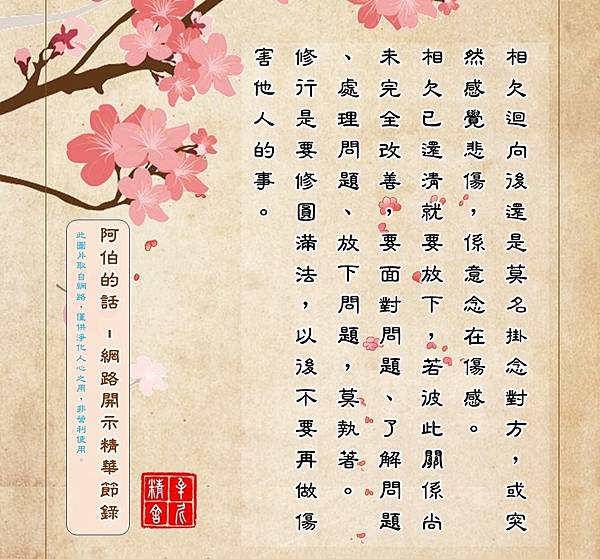 相欠迴向後還是莫名掛念對方，或突
然感覺悲傷，係意念在傷感。
相欠已還清就要放下，若彼此關係尚
未完全改善，要面對問題、了解問題
、處理問題、放下問題，莫執著。
修行是要修圓滿法，以後不要再做傷
害他人的事。
阿伯的話 - 網路開示精華節錄
此圖片取自網路，僅供淨化人心之用，非營利使用。
精舍